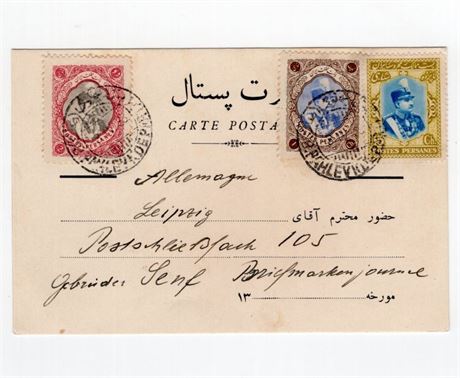 رت پستال
CARTE POSTA
POSTES PERSANES
Ch
Allemagne
Leipzig
حضور محترم آقای
Postschließfach 105
Gebrüder Senf Briefmarkenjourne
مورخه ۱۳